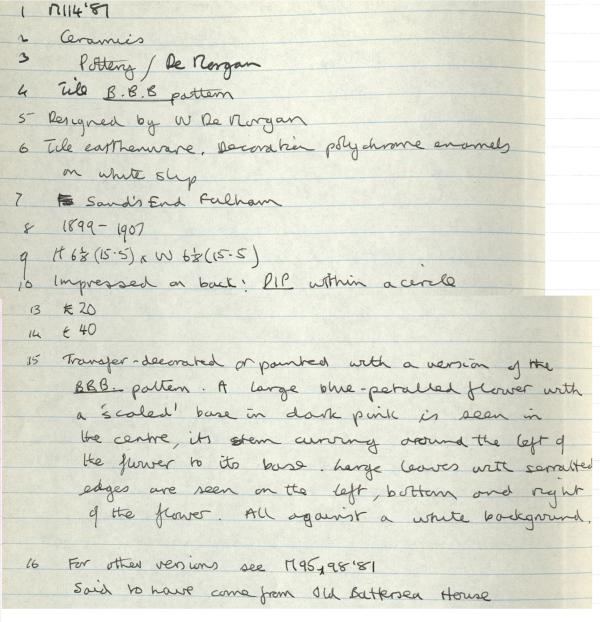 1 M114'81
2 Ceramics
3 Pottery / De Morgan
4 Tile B.B.B pattern
5 Designed by W De Morgan
6 Tile earthenware. Decoration polychrome enamels
on white slip
7 Sand's End Fulham
8 1899 - 1907
9 H 6⅛ (15.5) x W 6⅛ (15.5)
10 Impressed on back: DIP within a circle
13 20
14 £ 40
15 Transfer-decorated or painted with a version of the
BBB. pattern. A large blue-petalled flower with
a 'scaled' base in dark pink is seen in
the centre, its stem curving around the left of
the flower to its base. Large leaves with serrated
edges are seen on the left, bottom and right
of the flower. All against a white background.
16 For other versions see M95, 98'81
Said to have come from Old Battersea House